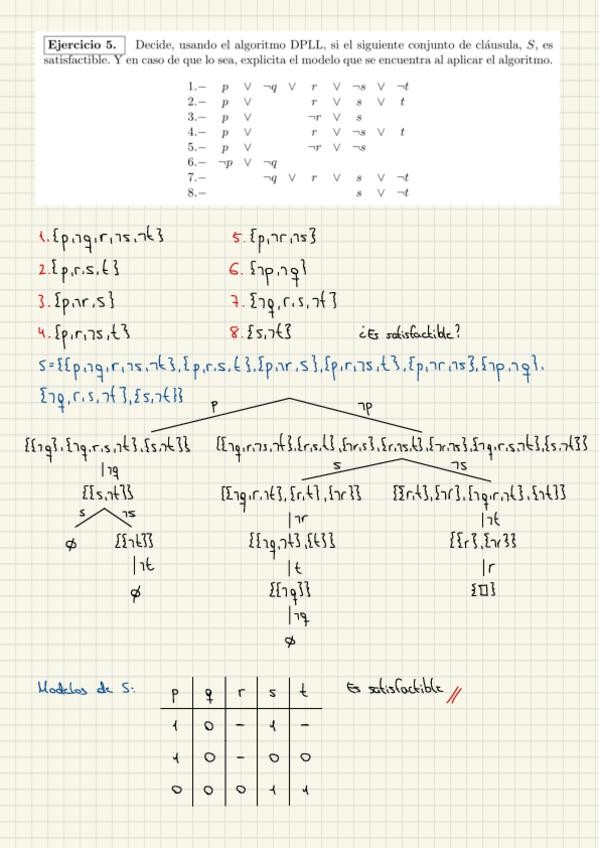 Ejercicio 5. Decide, usando el algoritmo DPLL, si el siguiente conjunto de cláusula, S, es
satisfactible. Y en caso de que lo sea, explicita el modelo que se encuentra al aplicar el algoritmo.
1.– p ∨ ¬q ∨ r ∨ ¬s ∨ ¬t
2.– p ∨ r ∨ s ∨ t
3.– p ∨ ¬r ∨ s
4.– p ∨ r ∨ ¬s ∨ t
5.– p ∨ ¬r ∨ ¬s
6.– ¬p ∨ ¬q
7.– ¬q ∨ r ∨ s ∨ ¬t
8.– s ∨ ¬t
1. {p,¬q,r,¬s,¬t} 5. {p,¬r,¬s}
2. {p,r,s,t} 6. {¬p,¬q}
3. {p,¬r,s} 7. {¬q,r,s,¬t}
4. {p,r,¬s,t} 8. {s,¬t} ¿Es satisfactible?
S={{p,¬q,r,¬s,¬t},{p,r,s,t},{p,¬r,s},{p,r,¬s,t},{p,¬r,¬s},{¬p,¬q},
{¬q,r,s,¬t},{s,¬t}}
p ¬p
{{¬q},{¬q,r,s,¬t},{s,¬t}} {{¬q,r,¬s,¬t},{r,s,t},{¬r,s},{r,¬s,t},{¬r,¬s},{¬q,r,s,¬t},{s,¬t}}
¬q s ¬s
{{s,¬t}} {{¬q,r,¬t},{r,t},{¬r}} {{r,t},{¬r},{¬q,r,¬t},{¬t}}
s ¬s ¬r ¬t
∅ {{¬t}} {{¬q,¬t},{t}} {{r},{¬r}}
¬t t r
∅ {{¬q}} {□}
¬q
∅
Modelos de S: p q r s t Es satisfactible //
1 0 - 1 -
1 0 - 0 0
0 0 0 1 1